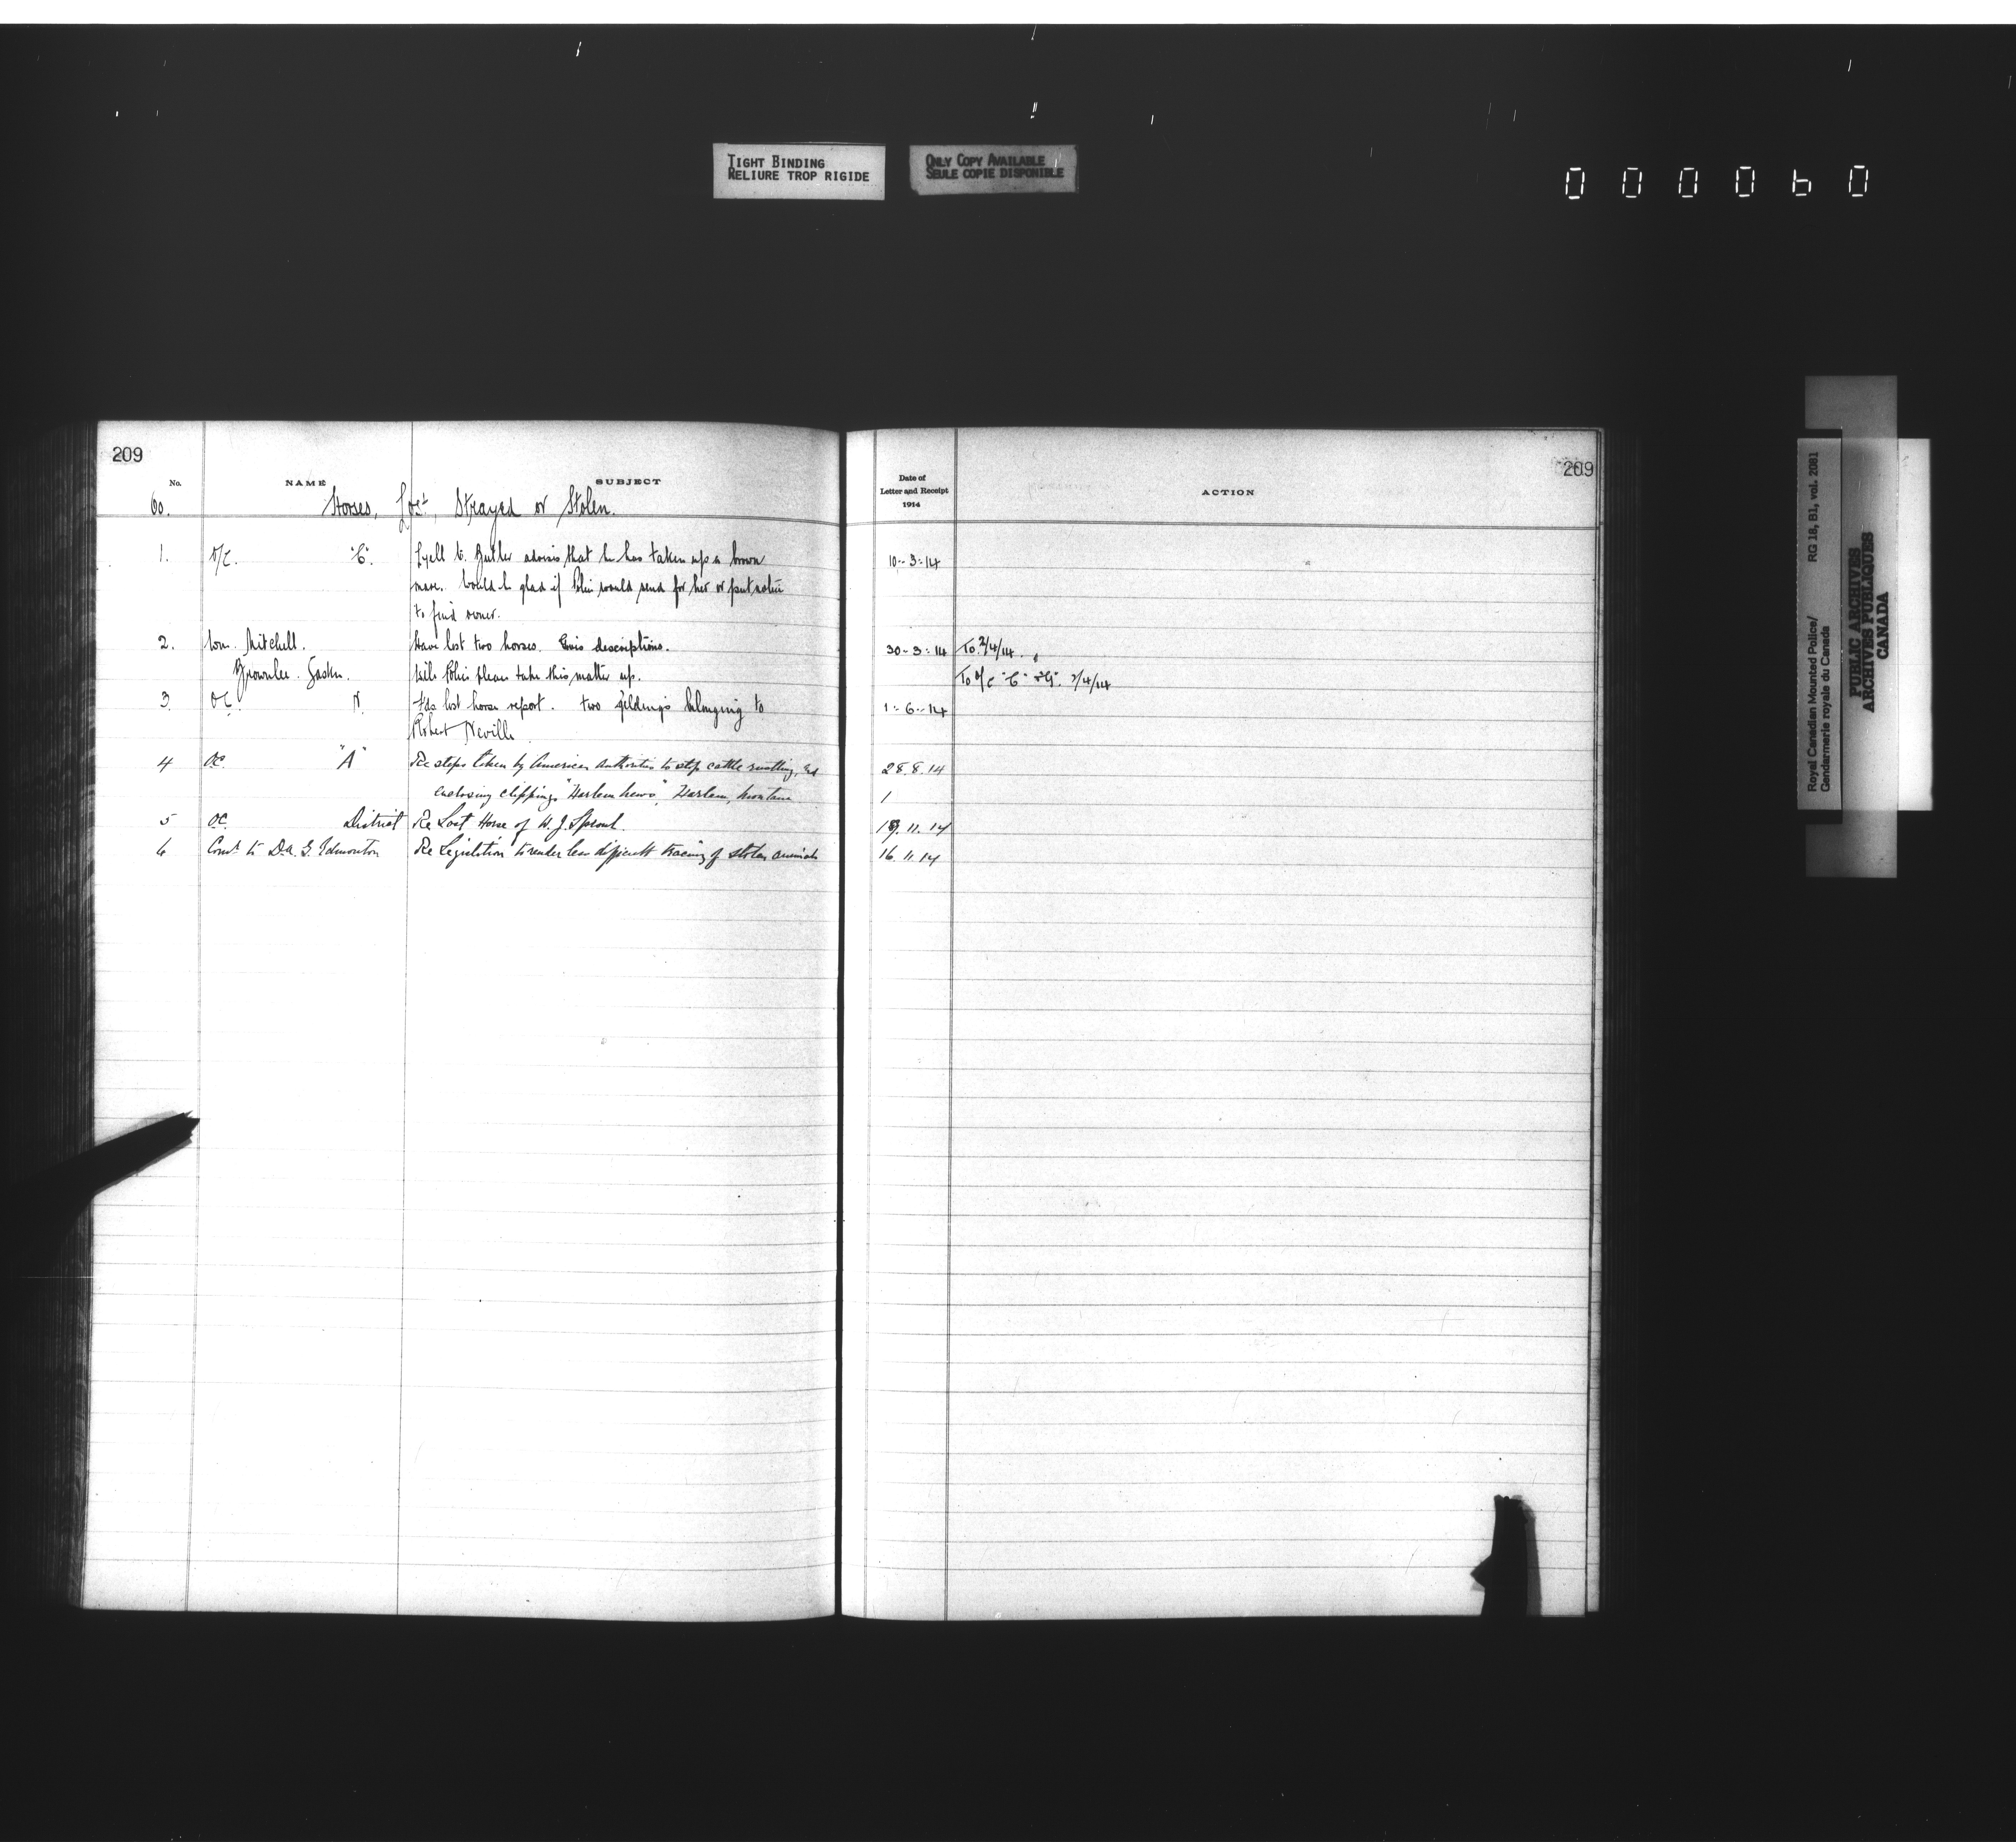 TIGHT BINDING
RELIURE TROP RIGIDE
ONLY COPY AVAILABLE
SEULE COPIE DISPONIBLE
209
No. NAME SUBJECT
60. Horses, Lost, Strayed or Stolen.
1. O/C. "C". Lyell C. Butler advises that he has taken up a brown
mare. Would be glad if Police would send for her or put notice
to find owner.
2. Wm. Mitchell. Have lost two horses. Gives descriptions.
Brownlee. Sask. Will Police please take this matter up.
3. O.C. N. Fds lost horse report. two geldings belonging to
Robert Neville
4 O.C. "A" Re steps taken by American Authorities to stop cattle rustling, and
enclosing clippings "Harlem News", Harlem, Montana
5 O.C. District Re Lost Horse of W. J. Sproul.
6 Comr. to D.A.G. Edmonton Re Legislation to render less difficult tracing of stolen animals
209
Date of
Letter and Receipt
1914
ACTION
10-3-14
30-3-14 To 2/4/14.
To O/C "C" 2/4/14
1-6-14
28.8.14
1
11.14
16.11.14
Royal Canadian Mounted Police/ RG 18, B1, vol. 2081
Gendarmerie royale du Canada
PUBLIC ARCHIVES
ARCHIVES PUBLIQUES
CANADA